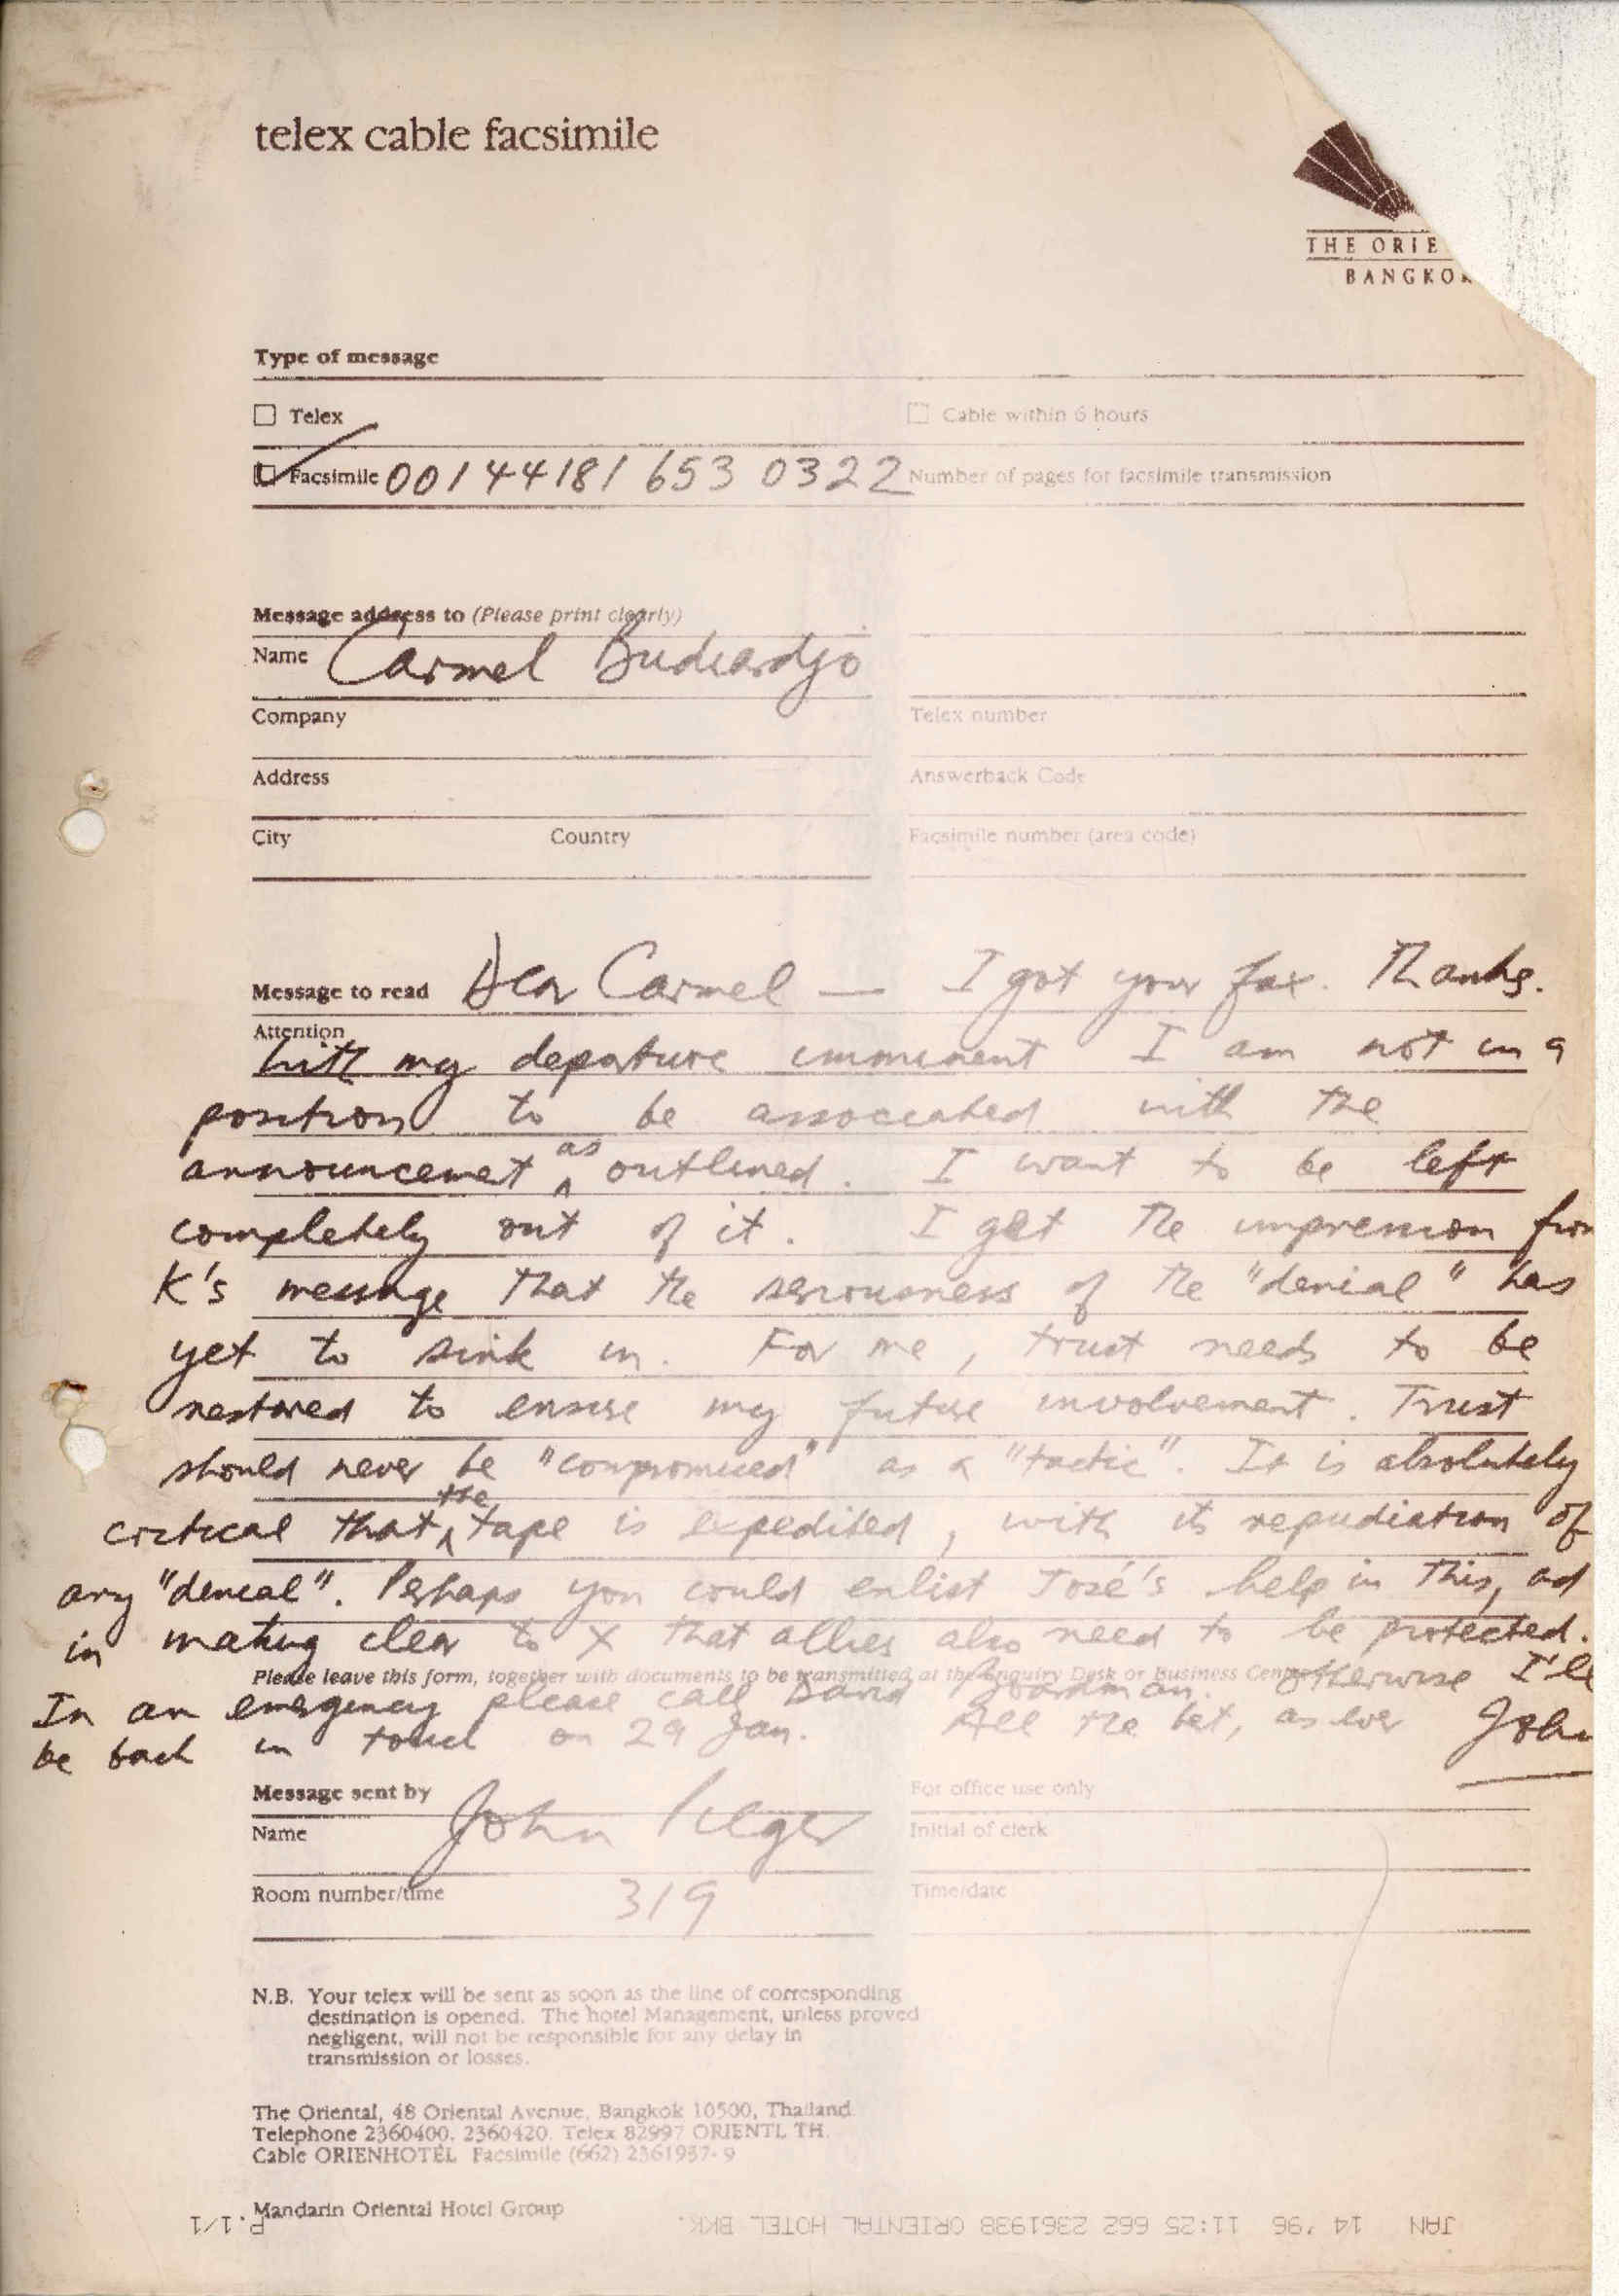 telex cable facsimile
THE ORIE
BANGKOK
Type of message
Telex
Cable within 6 hours
Facsimile 00144181 653 0322
Number of pages for facsimile transmission
Message address to (Please print clearly)
Name Carmel Budiardjo
Company
Telex number
Address
Answerback Code
City Country
Facsimile number (area code)
Message to read Dear Carmel — I got your fax. Thanks.
Attention
With my departure imminent I am not in a
position to be associated with the
announcemet as outlined. I want to be left
completely out of it. I get the impression from
K's message that the seriousness of the "denial" has
yet to sink in. For me, trust needs to be
restored to ensure my future involvement. Trust
should never be "compromised" as a "tactic". It is absolutely
critical that the tape is expedited, with its repudiation of
any "denial". Perhaps you could enlist José's help in this, ad
in making clear to X that allies also need to be protected.
Please leave this form, together with documents to be transmitted, at the Enquiry Desk or Business Centre
In an emergency please call David Boardman. Otherwise I'll
be back in touch on 29 Jan. All the bet, as ever John
Message sent by
For office use only
Name John Pilger
Initial of clerk
Room number/time 319
Time/date
N.B. Your telex will be sent as soon as the line of corresponding
destination is opened. The hotel Management, unless proved
negligent, will not be responsible for any delay in
transmission or losses.
The Oriental, 48 Oriental Avenue, Bangkok 10500, Thailand.
Telephone 2360400, 2360420. Telex 82997 ORIENTL TH.
Cable ORIENHOTEL Facsimile (662) 2361937-9
Mandarin Oriental Hotel Group
JAN 14 '96 11:25 662 2361938 ORIENTAL HOTEL BKK. P.1/1